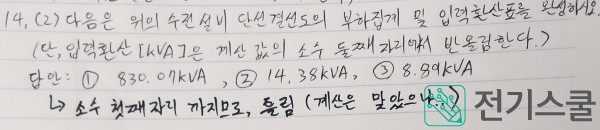 14. (2) 다음은 위의 수전설비 단선결선도의 부하집계 및 입력환산표를 완성하시오.
(단, 입력환산 [kVA]은 계산 값의 소수 둘째 자리에서 반올림한다.)
답안: ① 830.07kVA, ② 14.38kVA, ③ 8.89kVA
↳ 소수 첫째 자리 까지므로, 틀림 (계산은 맞았으나..?)
전기스쿨